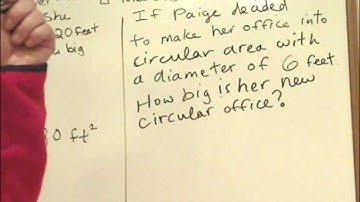 She
20 feet
big
0 ft²
If Paige decided
to make her office into
circular area with
a diameter of 6 feet.
How big is her new
circular office?